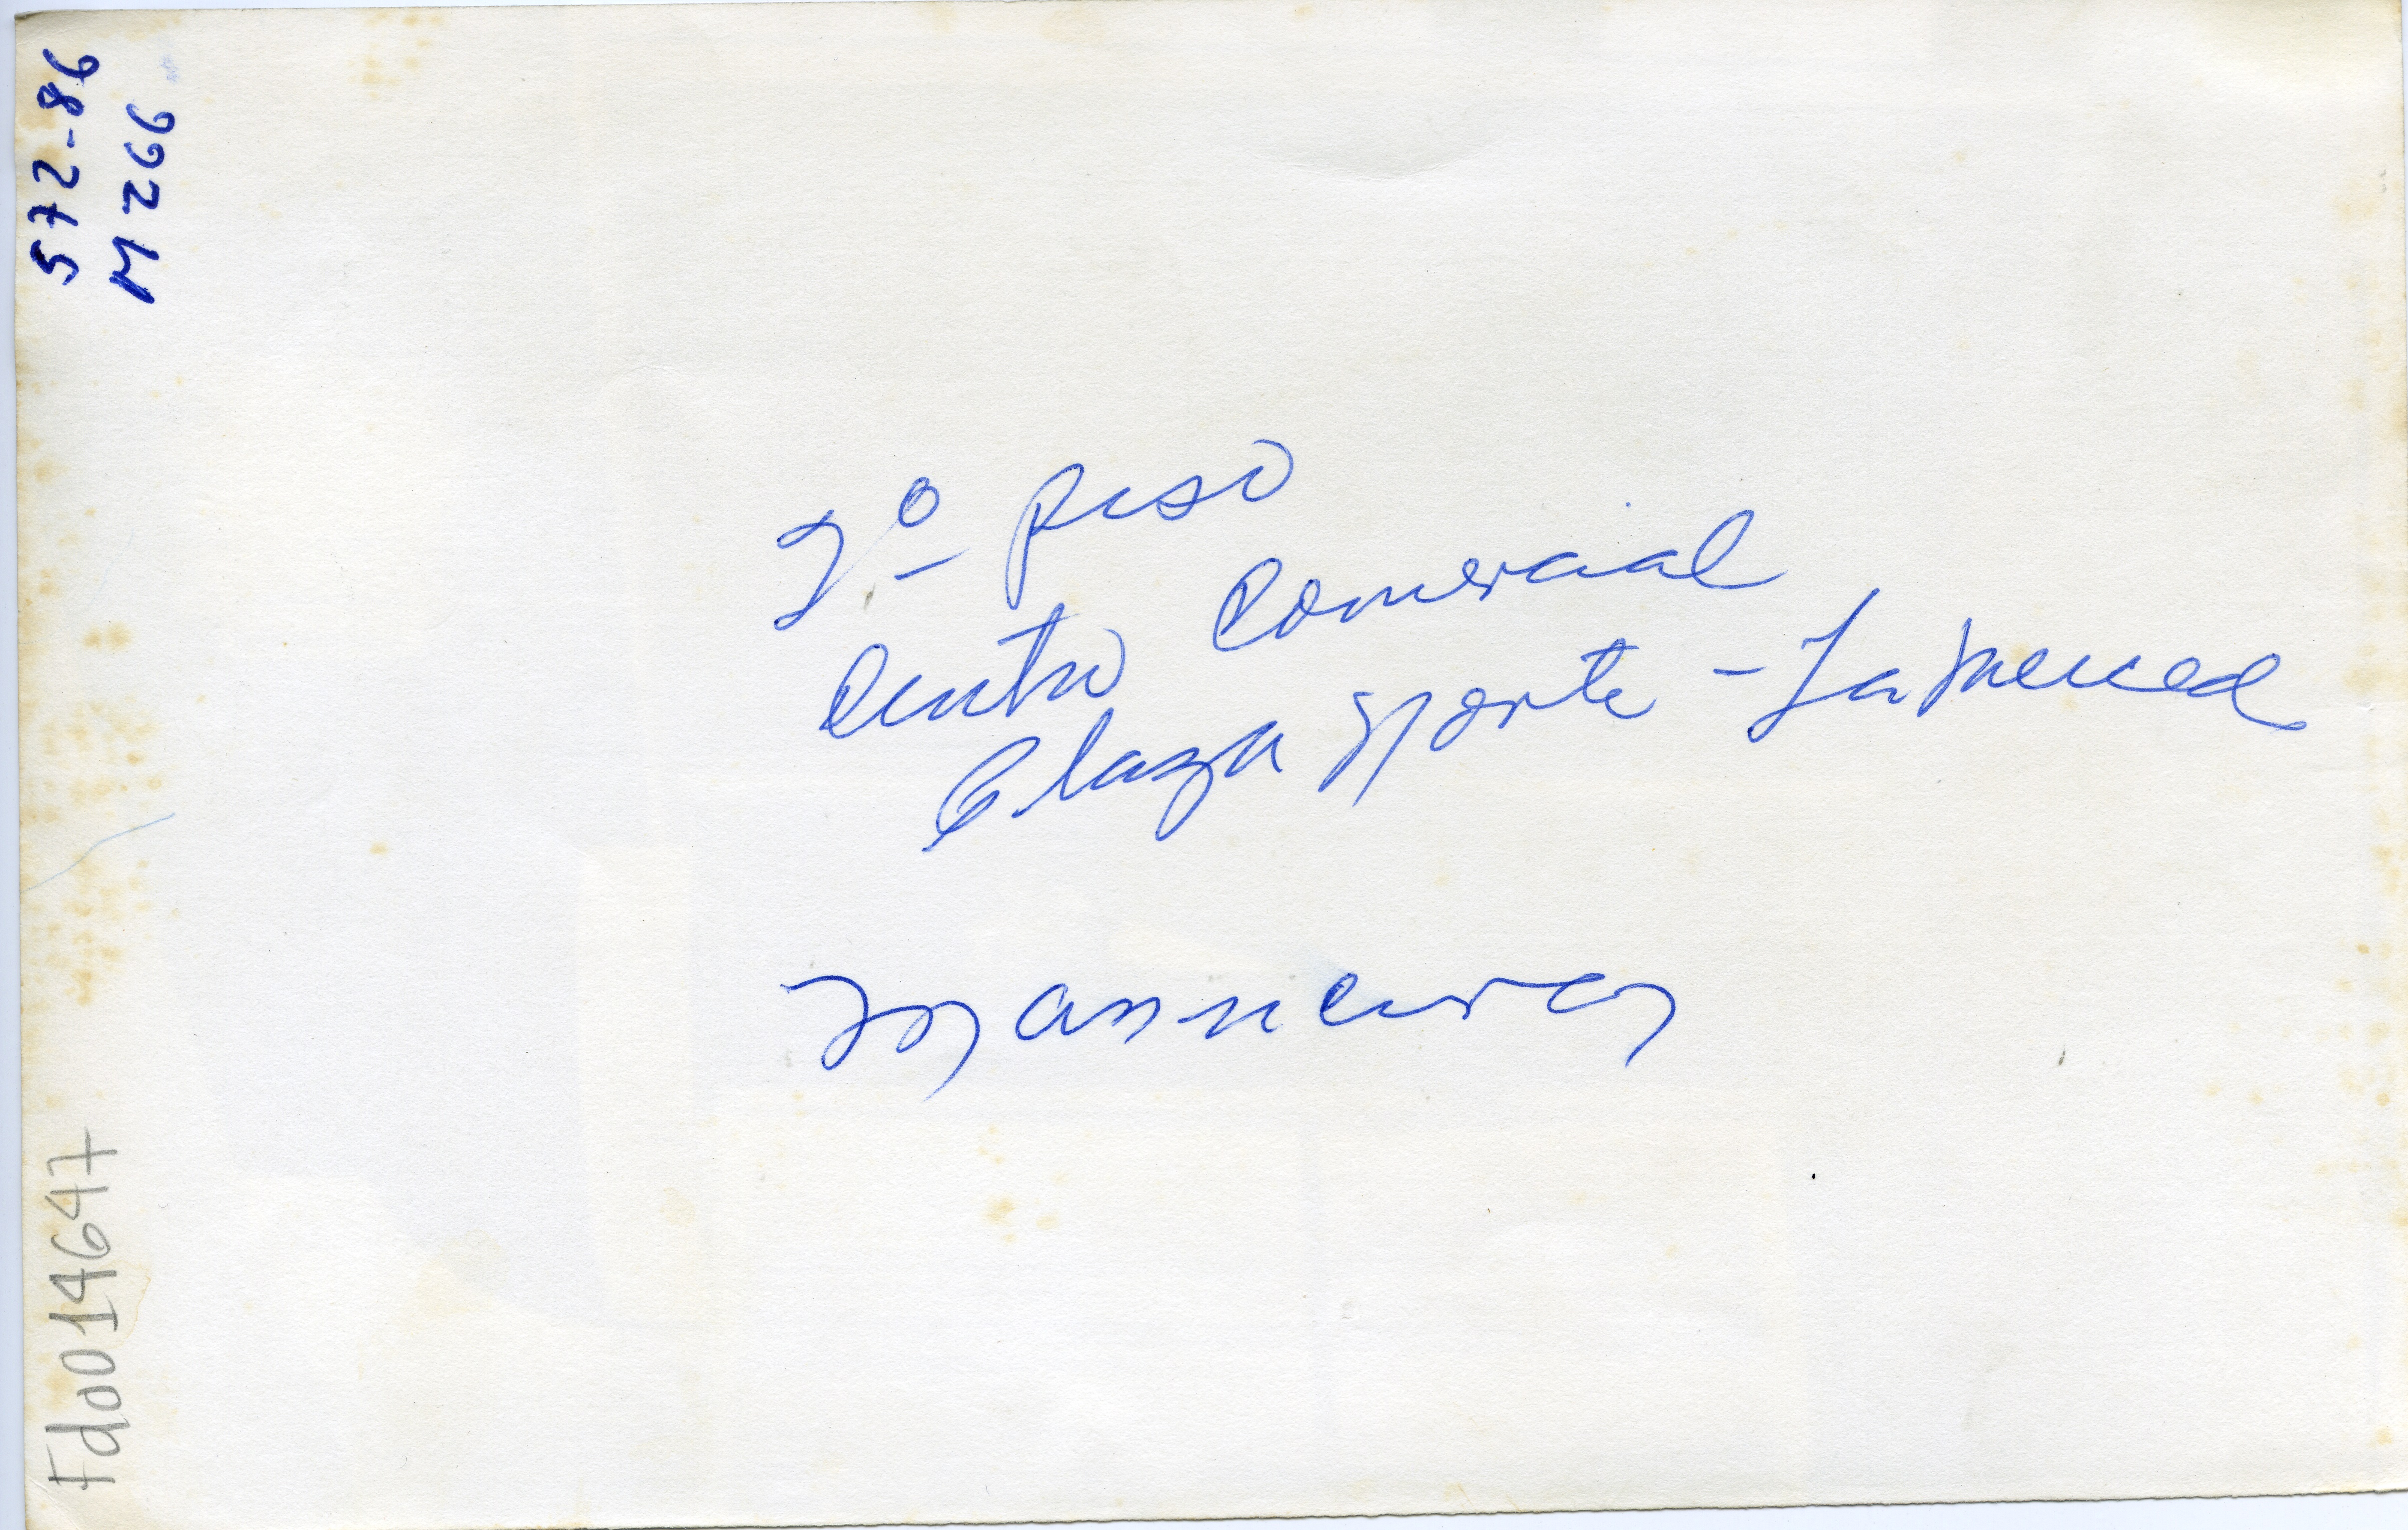 572-86
M 266
2º piso
Centro Comercial
Plaza Norte - La Merced
Fdo014647